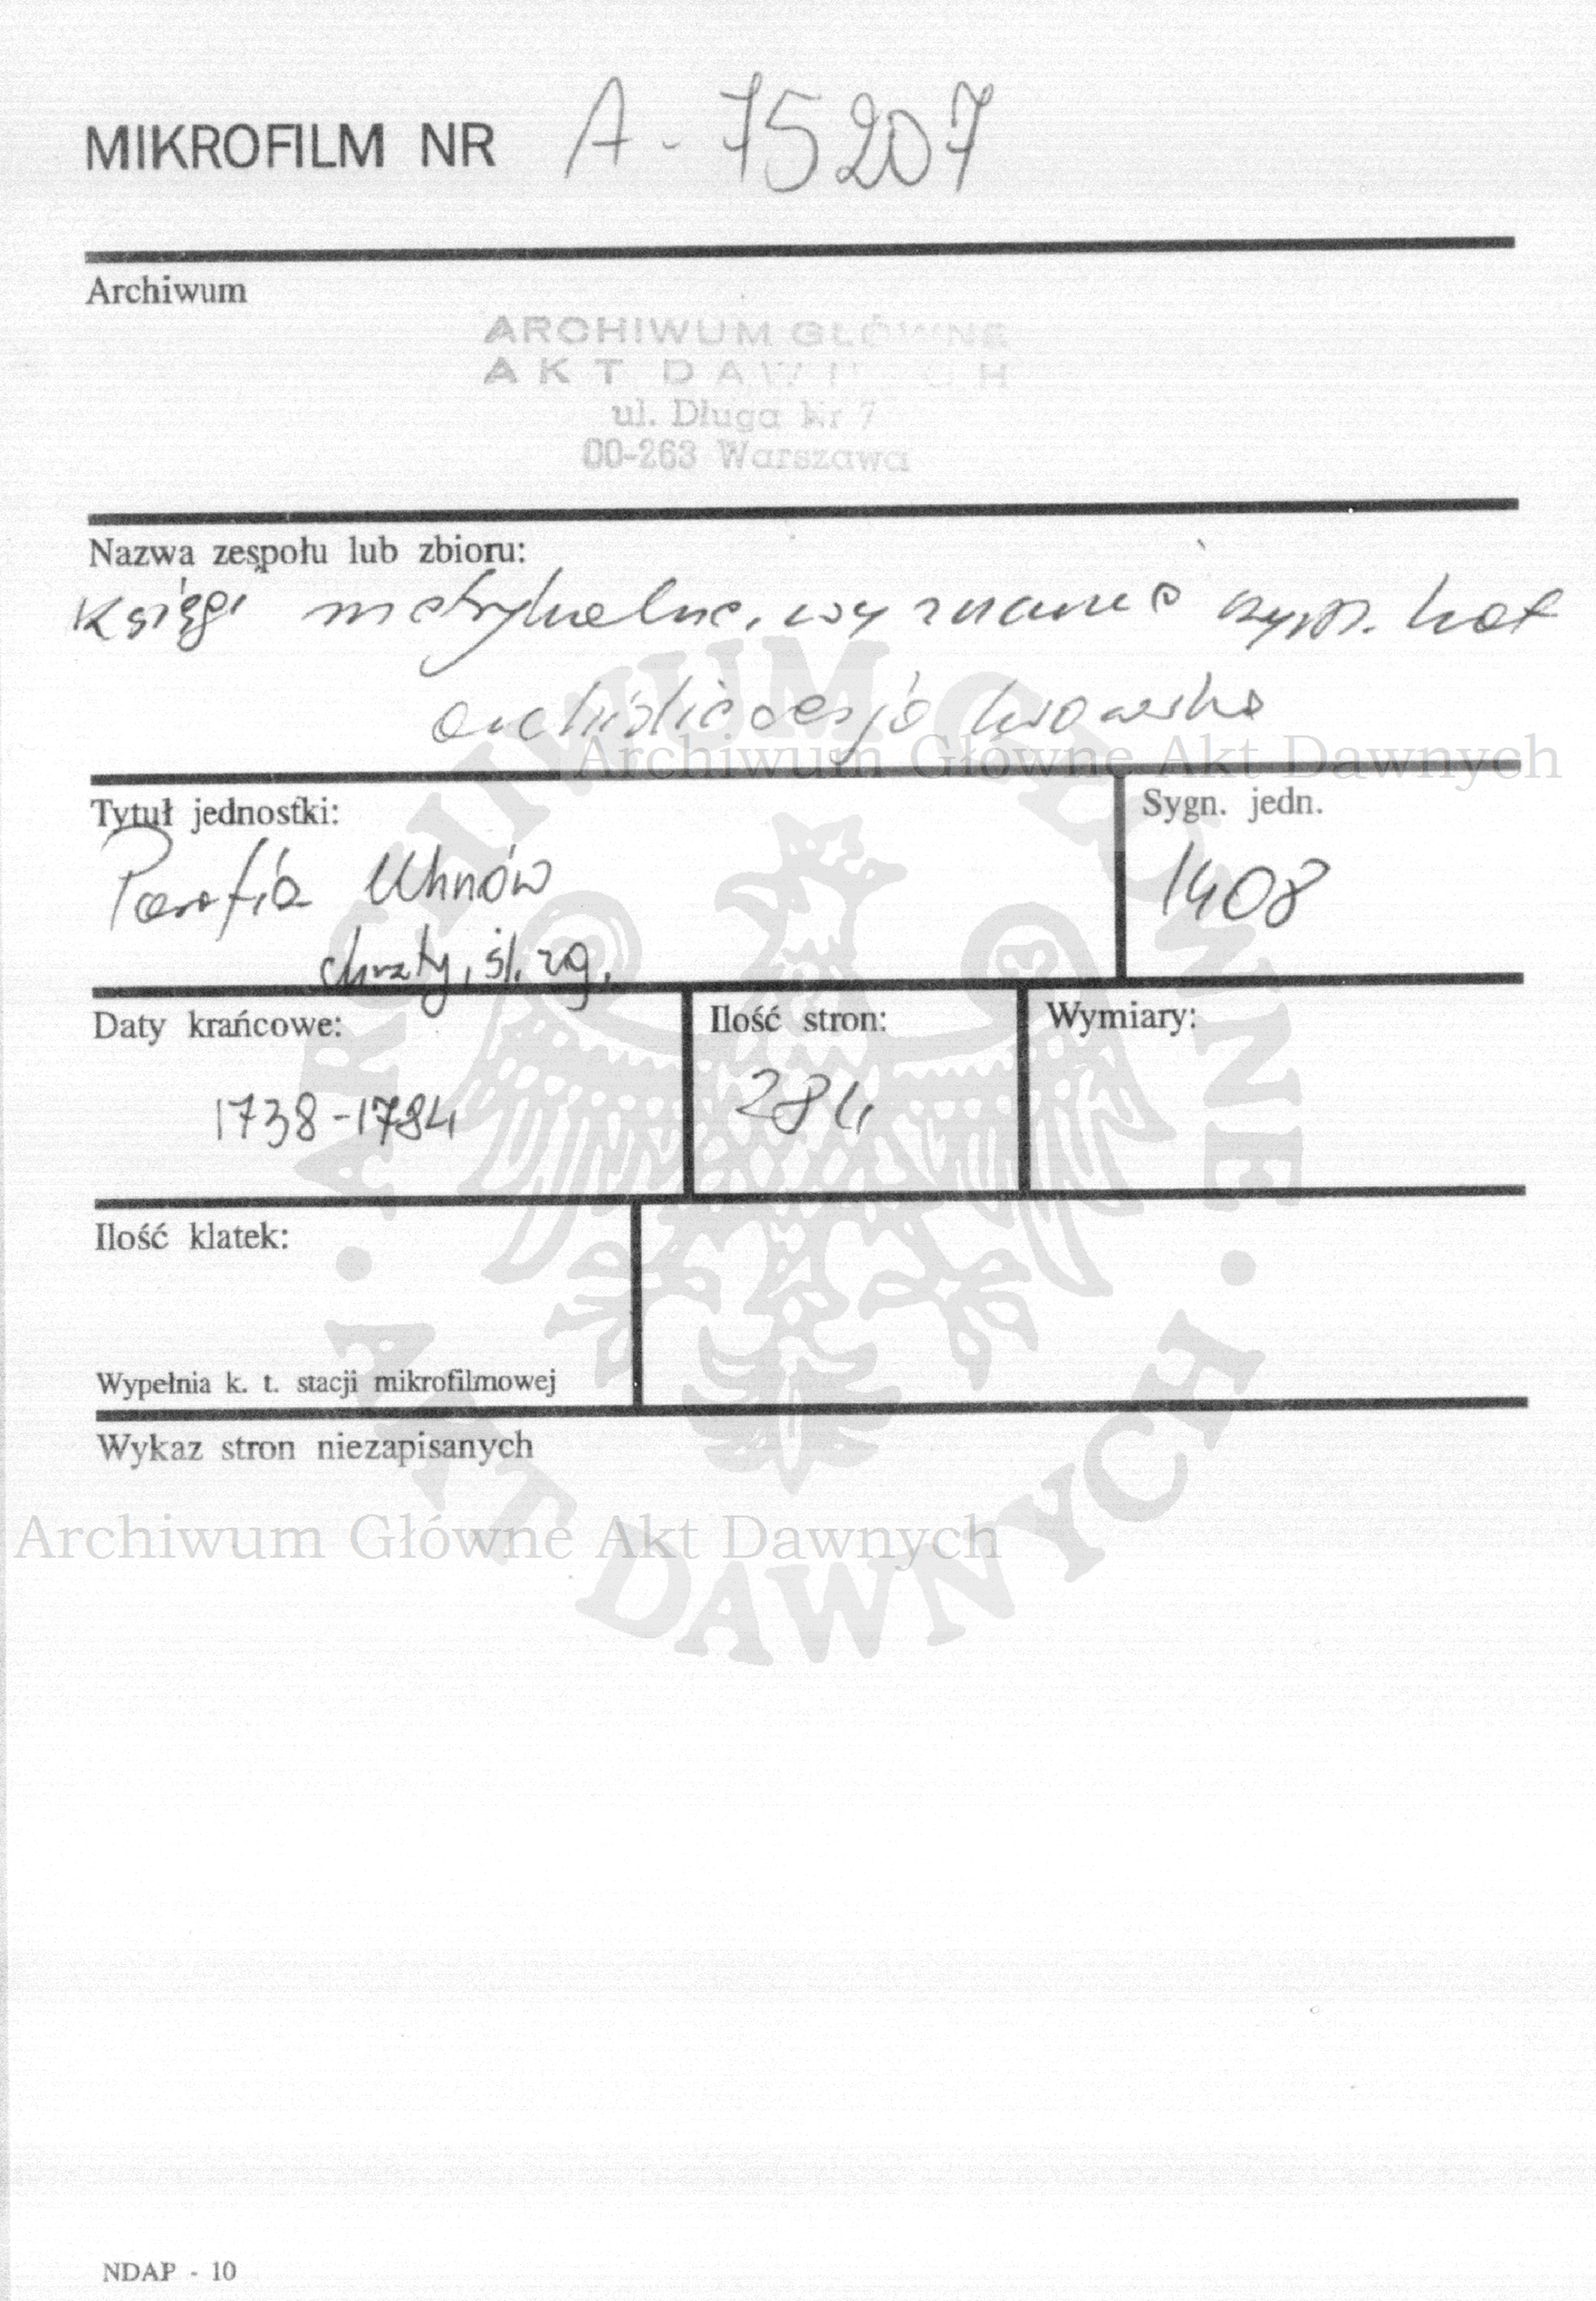 MIKROFILM NR A-75207
Archiwum
ARCHIWUM GŁÓWNE
AKT DAWNYCH
ul. Długa Nr 7
00-263 Warszawa
Nazwa zespołu lub zbioru:
Księgi metrykalne, wyznanie rzym. kat
archidiecezja lwowska
Archiwum Główne Akt Dawnych
Tytuł jednostki:
Sygn. jedn.
Parafia Uhnów
1408
chrzty, śl. zg.
Daty krańcowe:
Ilość stron:
Wymiary:
1738-1784
284
Ilość klatek:
Wypełnia k. t. stacji mikrofilmowej
Wykaz stron niezapisanych
Archiwum Główne Akt Dawnych
ARCHIWUM GŁÓWNE · AKT DAWNYCH ·
NDAP - 10